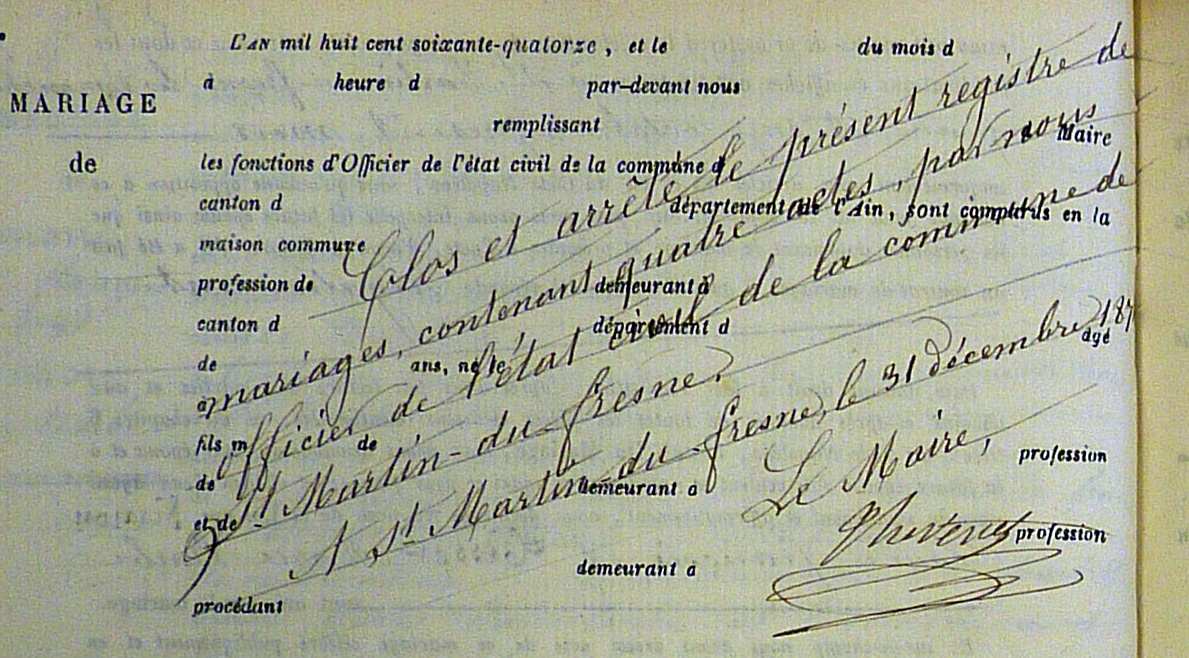 L'AN mil huit cent soixante-quatorze, et le du mois d
à heure d par-devant nous
MARIAGE
remplissant
de
les fonctions d'Officier de l'état civil de la commune d Maire
canton d département de l'Ain, sont comparus en la
maison commune
profession de demeurant à
canton d département d
de ans, né le âgé
à
fils m de
de demeurant à profession
et de
profession
demeurant à
procédant
Clos et arrêté le présent registre de
mariages, contenant quatre actes, par nous
officier de l'état civil de la commune de
St Martin-du-fresne.
A St Martin-du-fresne, le 31 décembre 187
Le Maire,